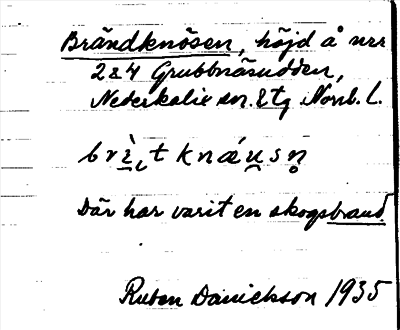 Brändknösen, höjd å nrr
2 & 4 Grubbnäsudden,
Nederkalix sn. Norrb. L.
Där har varit en skogsbrand.
Ruben Danielsson 1935